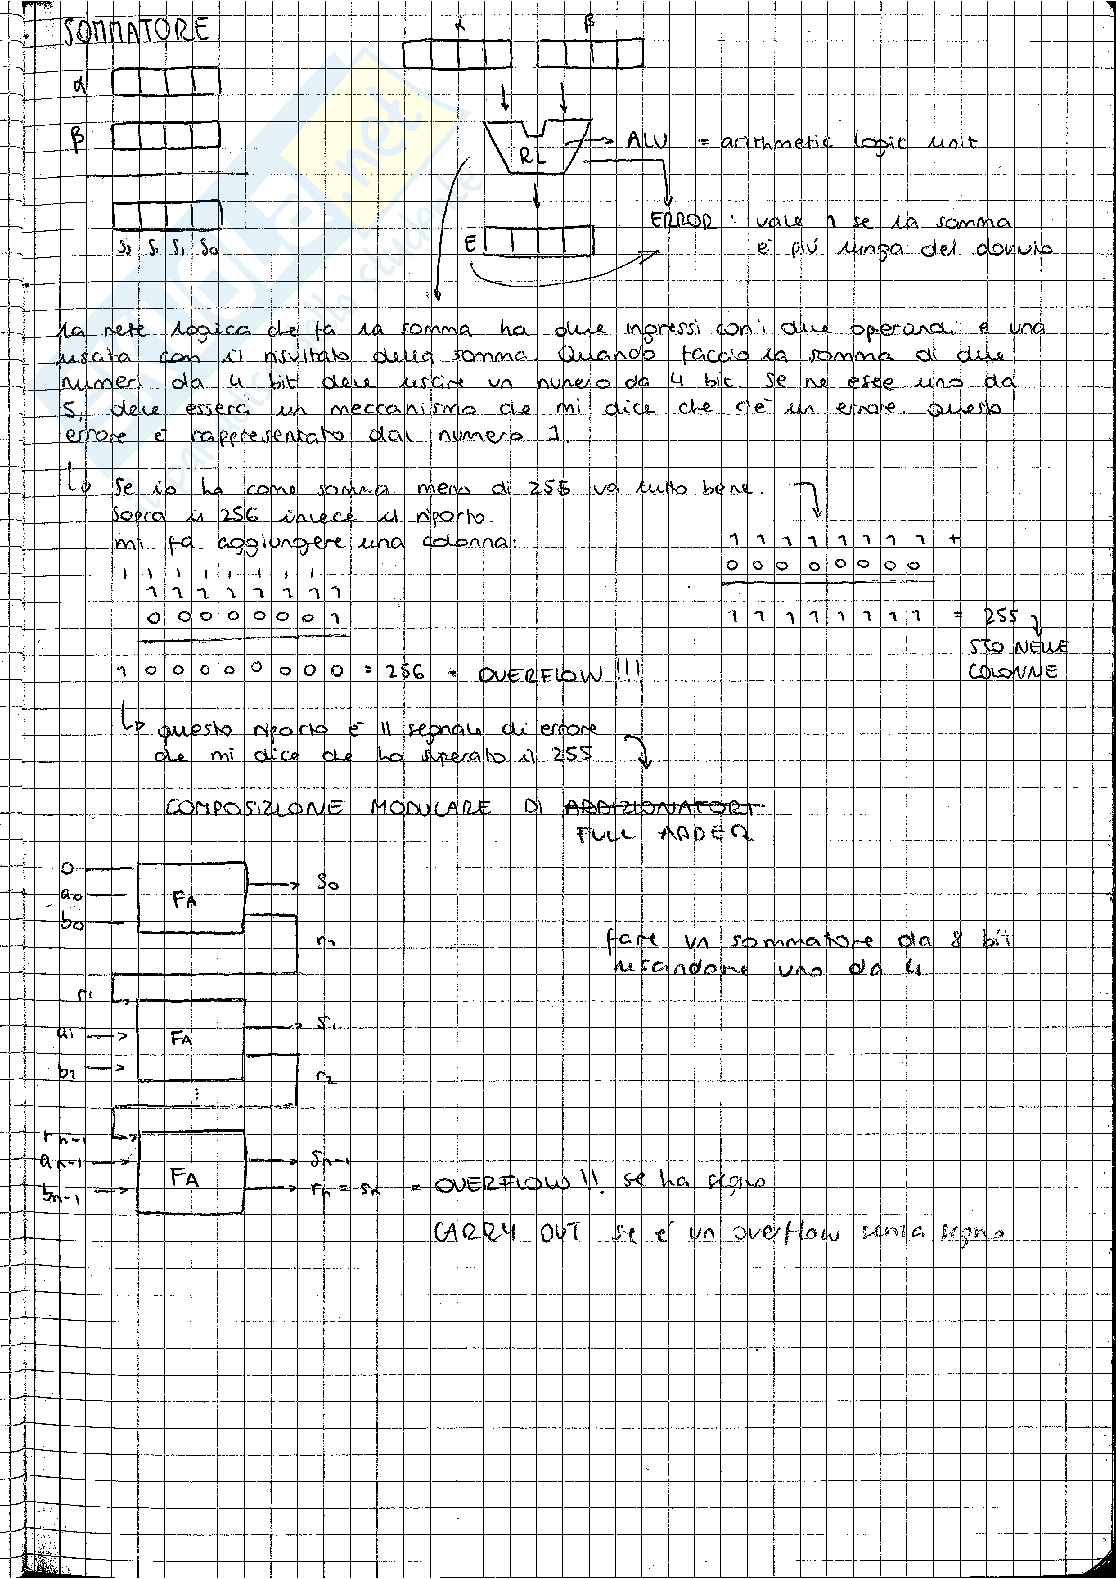 SOMMATORE
α
β
S3 S2 S1 S0
α β
RL
ALU = arithmetic logic unit
E
ERROR : vale 1 se la somma
è più lunga del dovuto
la rete logica che fa la somma ha due ingressi con i due operandi e una
uscita con il risultato della somma. Quando faccio la somma di due
numeri da 4 bit deve uscire un numero da 4 bit. Se ne esce uno da
5, deve esserci un meccanismo che mi dice che c'è un errore. Questo
errore è rappresentato dal numero 1.
Se io ho come somma meno di 256 va tutto bene.
Sopra il 256 invece il riporto
mi fa aggiungere una colonna:
1 1 1 1 1 1 1 1
1 1 1 1 1 1 1 1
0 0 0 0 0 0 0 1
1 0 0 0 0 0 0 0 0 = 256 = OVERFLOW!!!
1 1 1 1 1 1 1 1 +
0 0 0 0 0 0 0 0
1 1 1 1 1 1 1 1 = 255
STO NELLE
COLONNE
questo riporto è il segnale di errore
che mi dice che ho superato il 255
COMPOSIZIONE MODULARE DI ADDIZIONATORI
FULL ADDER
0
a0
b0
FA
S0
r1
fare un sommatore da 8 bit
usandone uno da 4
r1
a1
b1
FA
S1
r2
rn-1
an-1
bn-1
FA
Sn-1
rn = sn = OVERFLOW!! se ha segno
CARRY OUT se è un overflow senza segno